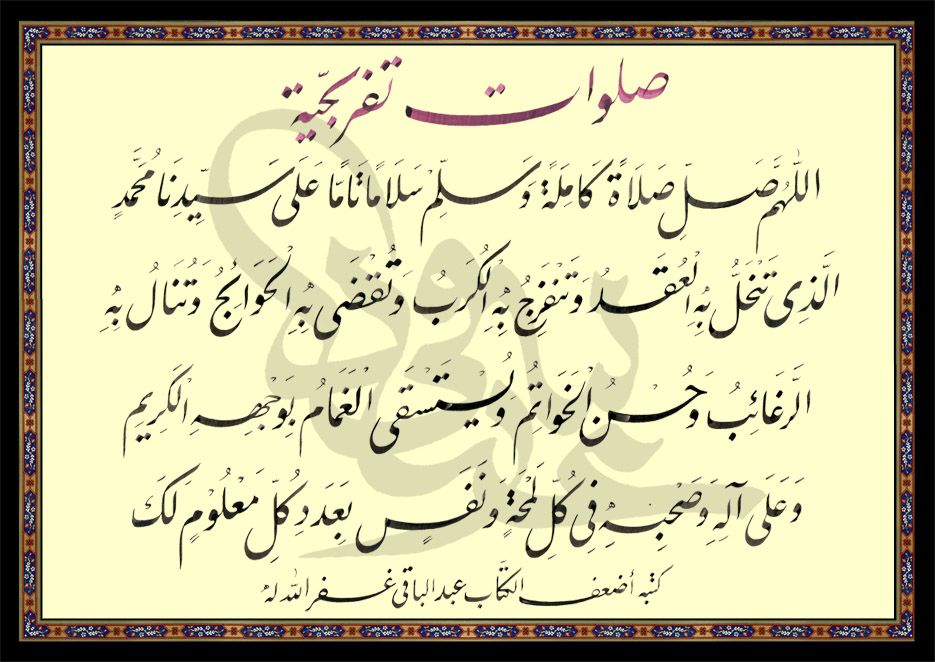 صلوات تفريجيّة
اللّٰهُمَّ صَلِّ صَلَاةً كَامِلَةً وَسَلِّمْ سَلَامًا تَامًا عَلَى سَيِّدِنَا مُحَمَّدٍ
الَّذِى تَنْحَلُّ بِهِ الْعُقَدُ وَتَنْفَرِجُ بِهِ الْكُرَبُ وَتُقْضَى بِهِ الْحَوَائِجُ وَتُنَالُ بِهِ
الرَّغَائِبُ وَحُسْنُ الْخَوَاتِمُ وَيُسْتَسْقَى الْغَمَامُ بِوَجْهِهِ الْكَرِيمِ
وَعَلَى آلِهِ وَصَحْبِهِ فِى كُلِّ لَمْحَةٍ وَنَفَسٍ بِعَدَدِ كُلِّ مَعْلُومٍ لَكَ
كتبه أضعف الكتّاب عبد الباقى غفر الله له